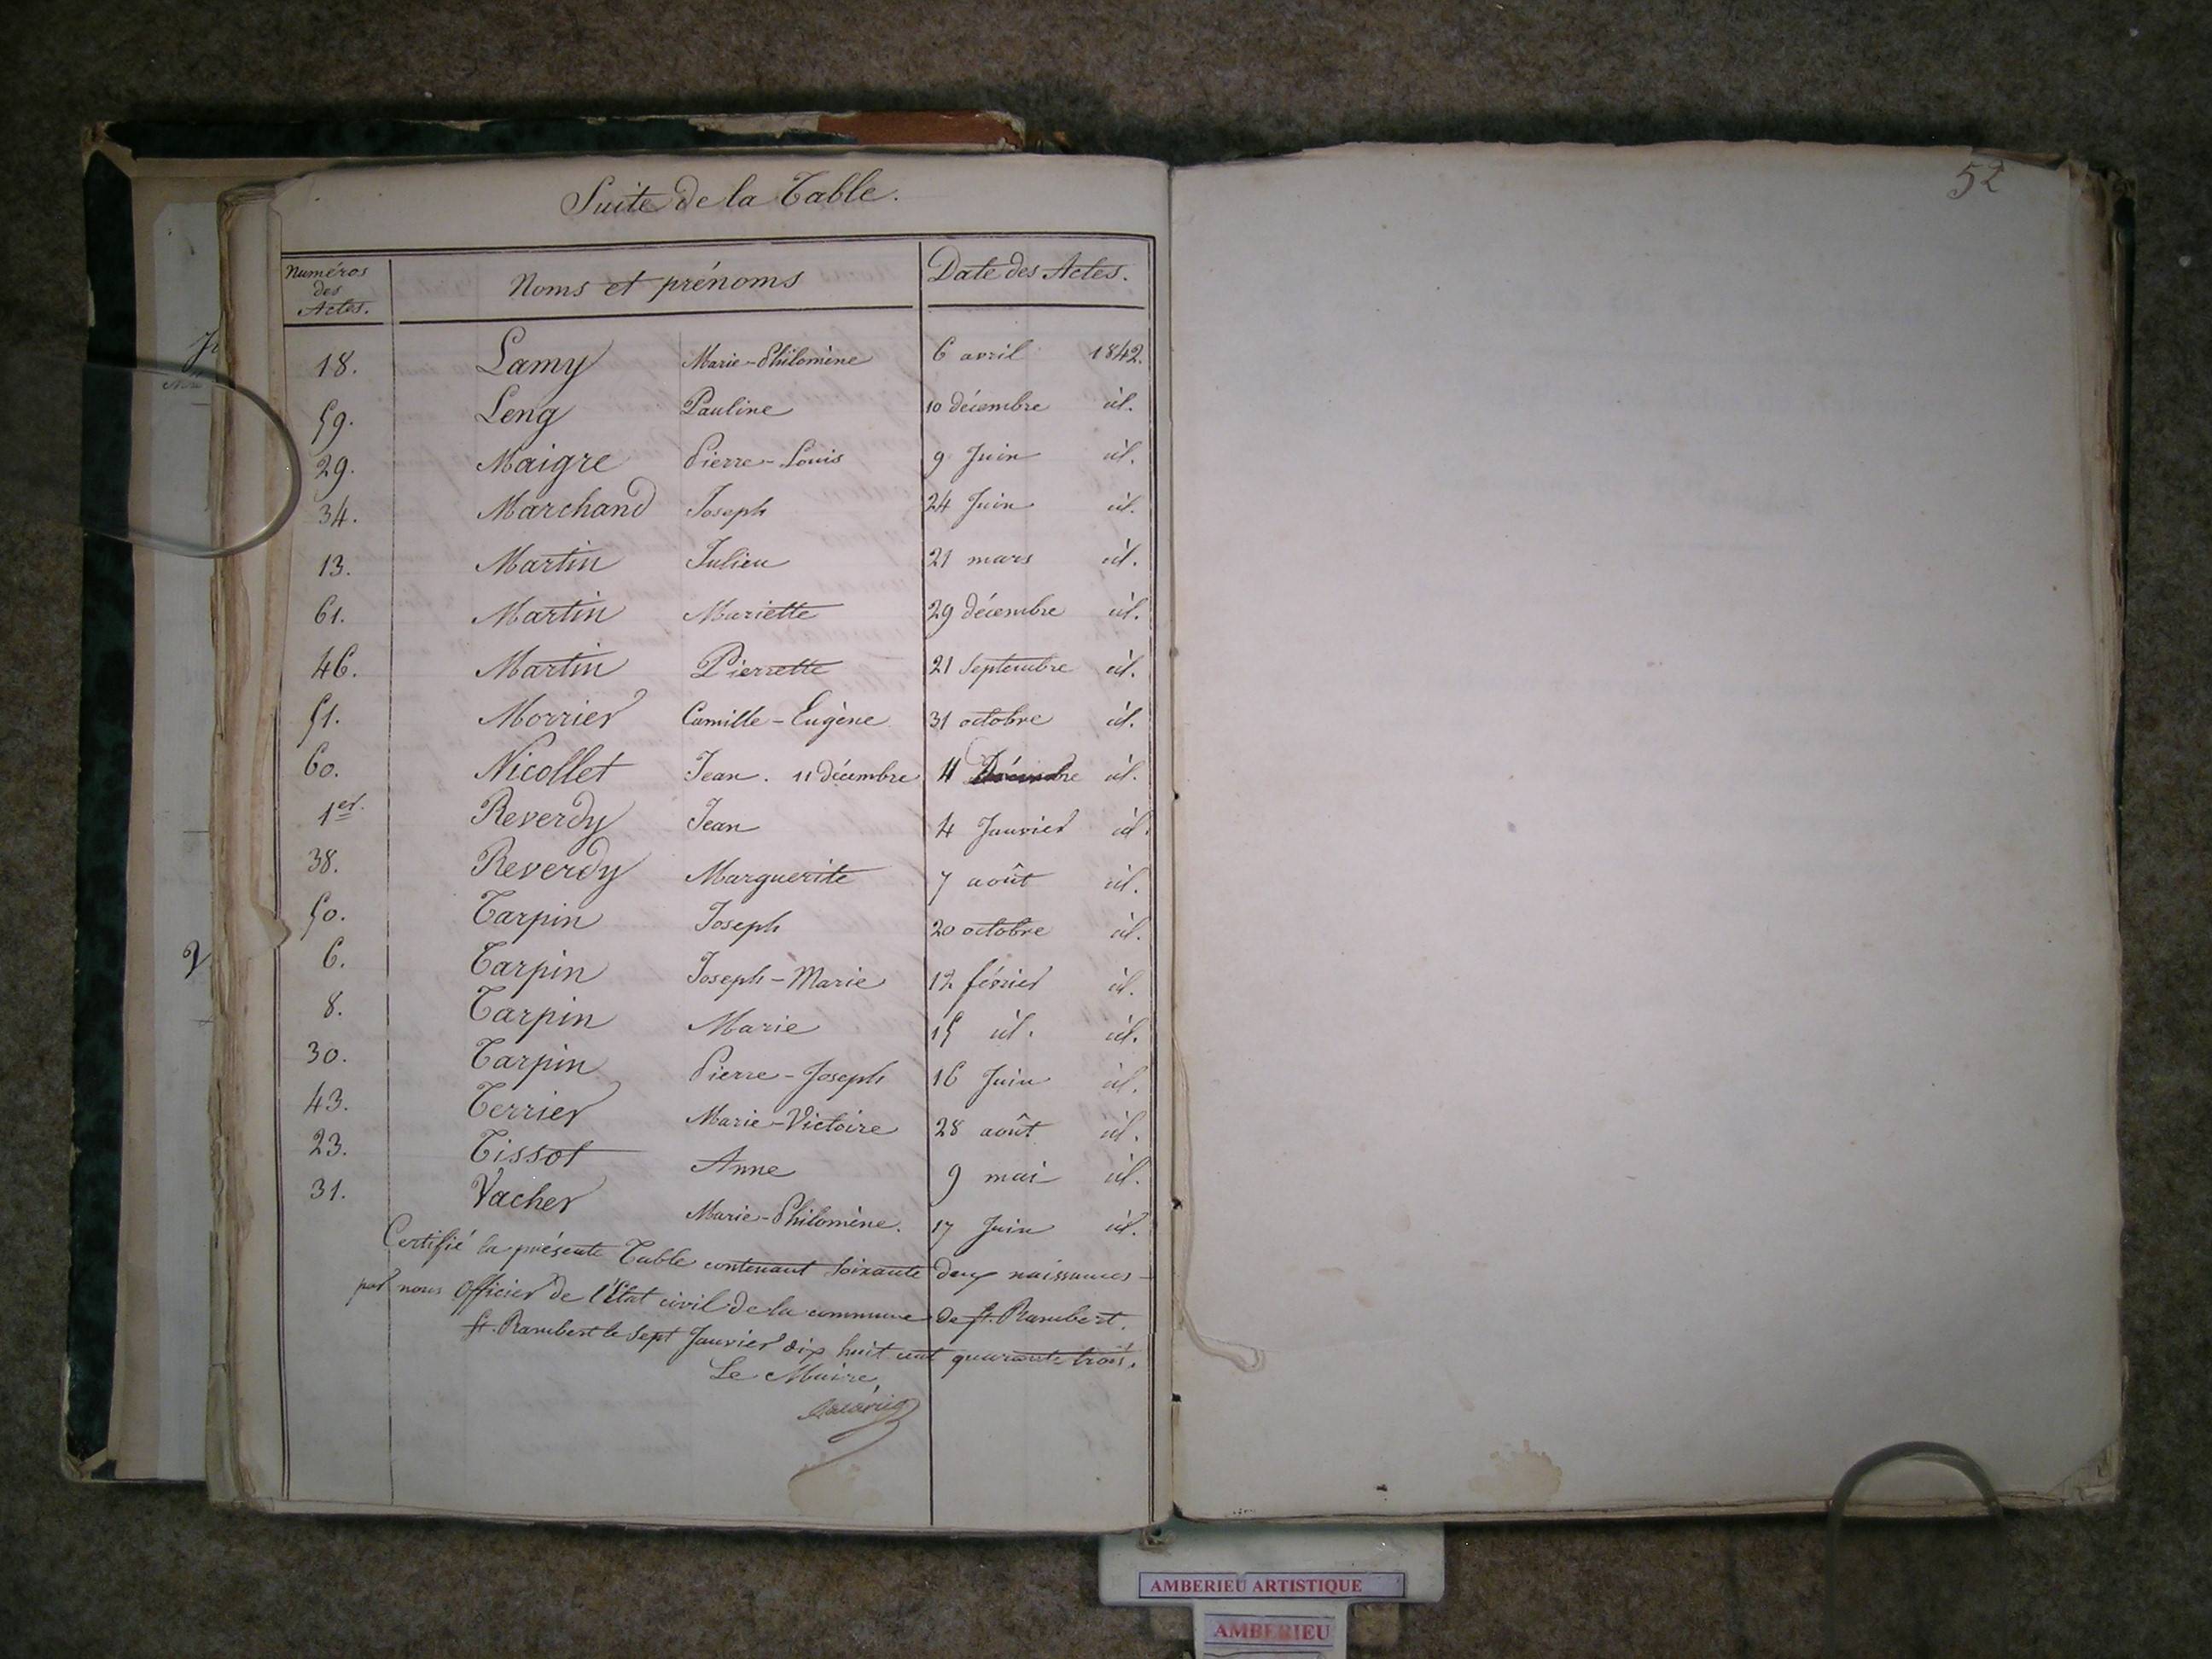 Suite de la Table.
52
Numéros des Actes. Noms et prénoms Date des Actes.
18. Lamy Marie-Philomène 6 avril 1842.
59. Leng Pauline 10 décembre id.
29. Maigre Pierre-Louis 9 Juin id.
34. Marchand Joseph 24 Juin id.
13. Martin Julien 21 mars id.
61. Martin Mariette 29 décembre id.
46. Martin Pierrette 21 Septembre id.
51. Morrier Camille-Eugène 31 octobre id.
60. Nicollet Jean. 11 décembre 11 Décembre id.
1er. Reverdy Jean 4 Janvier id.
38. Reverdy Marguerite 7 août id.
50. Tarpin Joseph 20 octobre id.
6. Tarpin Joseph-Marie 12 février id.
8. Tarpin Marie 15 id. id.
30. Tarpin Pierre-Joseph 16 Juin id.
43. Terrier Marie-Victoire 28 août id.
23. Tissot Anne 9 mai id.
31. Vacher Marie-Philomène. 17 Juin id.
Certifié la présente Table contenant soixante deux naissances
par nous Officier de l'État civil de la commune de St. Rambert.
St. Rambert le Sept Janvier dix huit cent quarante trois.
Le Maire,
AMBERIEU ARTISTIQUE
AMBERIEU